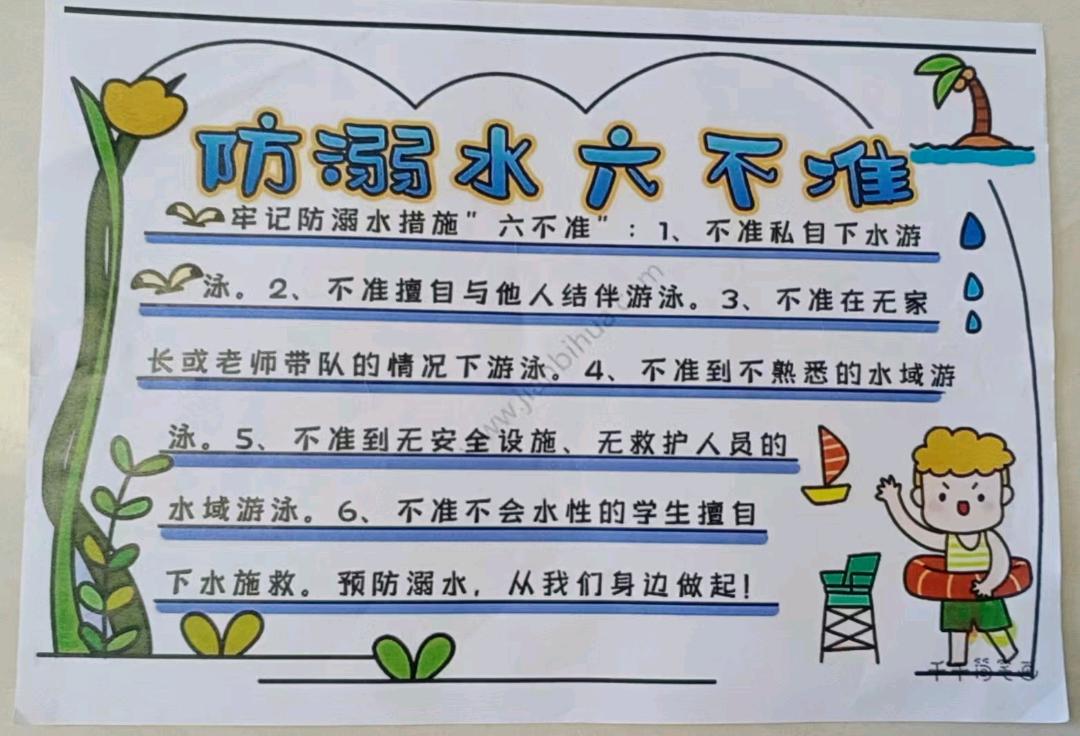 防溺水六不准
牢记防溺水措施"六不准"：1、不准私自下水游
泳。2、不准擅自与他人结伴游泳。3、不准在无家
长或老师带队的情况下游泳。4、不准到不熟悉的水域游
泳。5、不准到无安全设施、无救护人员的
水域游泳。6、不准不会水性的学生擅自
下水施救。预防溺水，从我们身边做起！
www.jianbihua.com